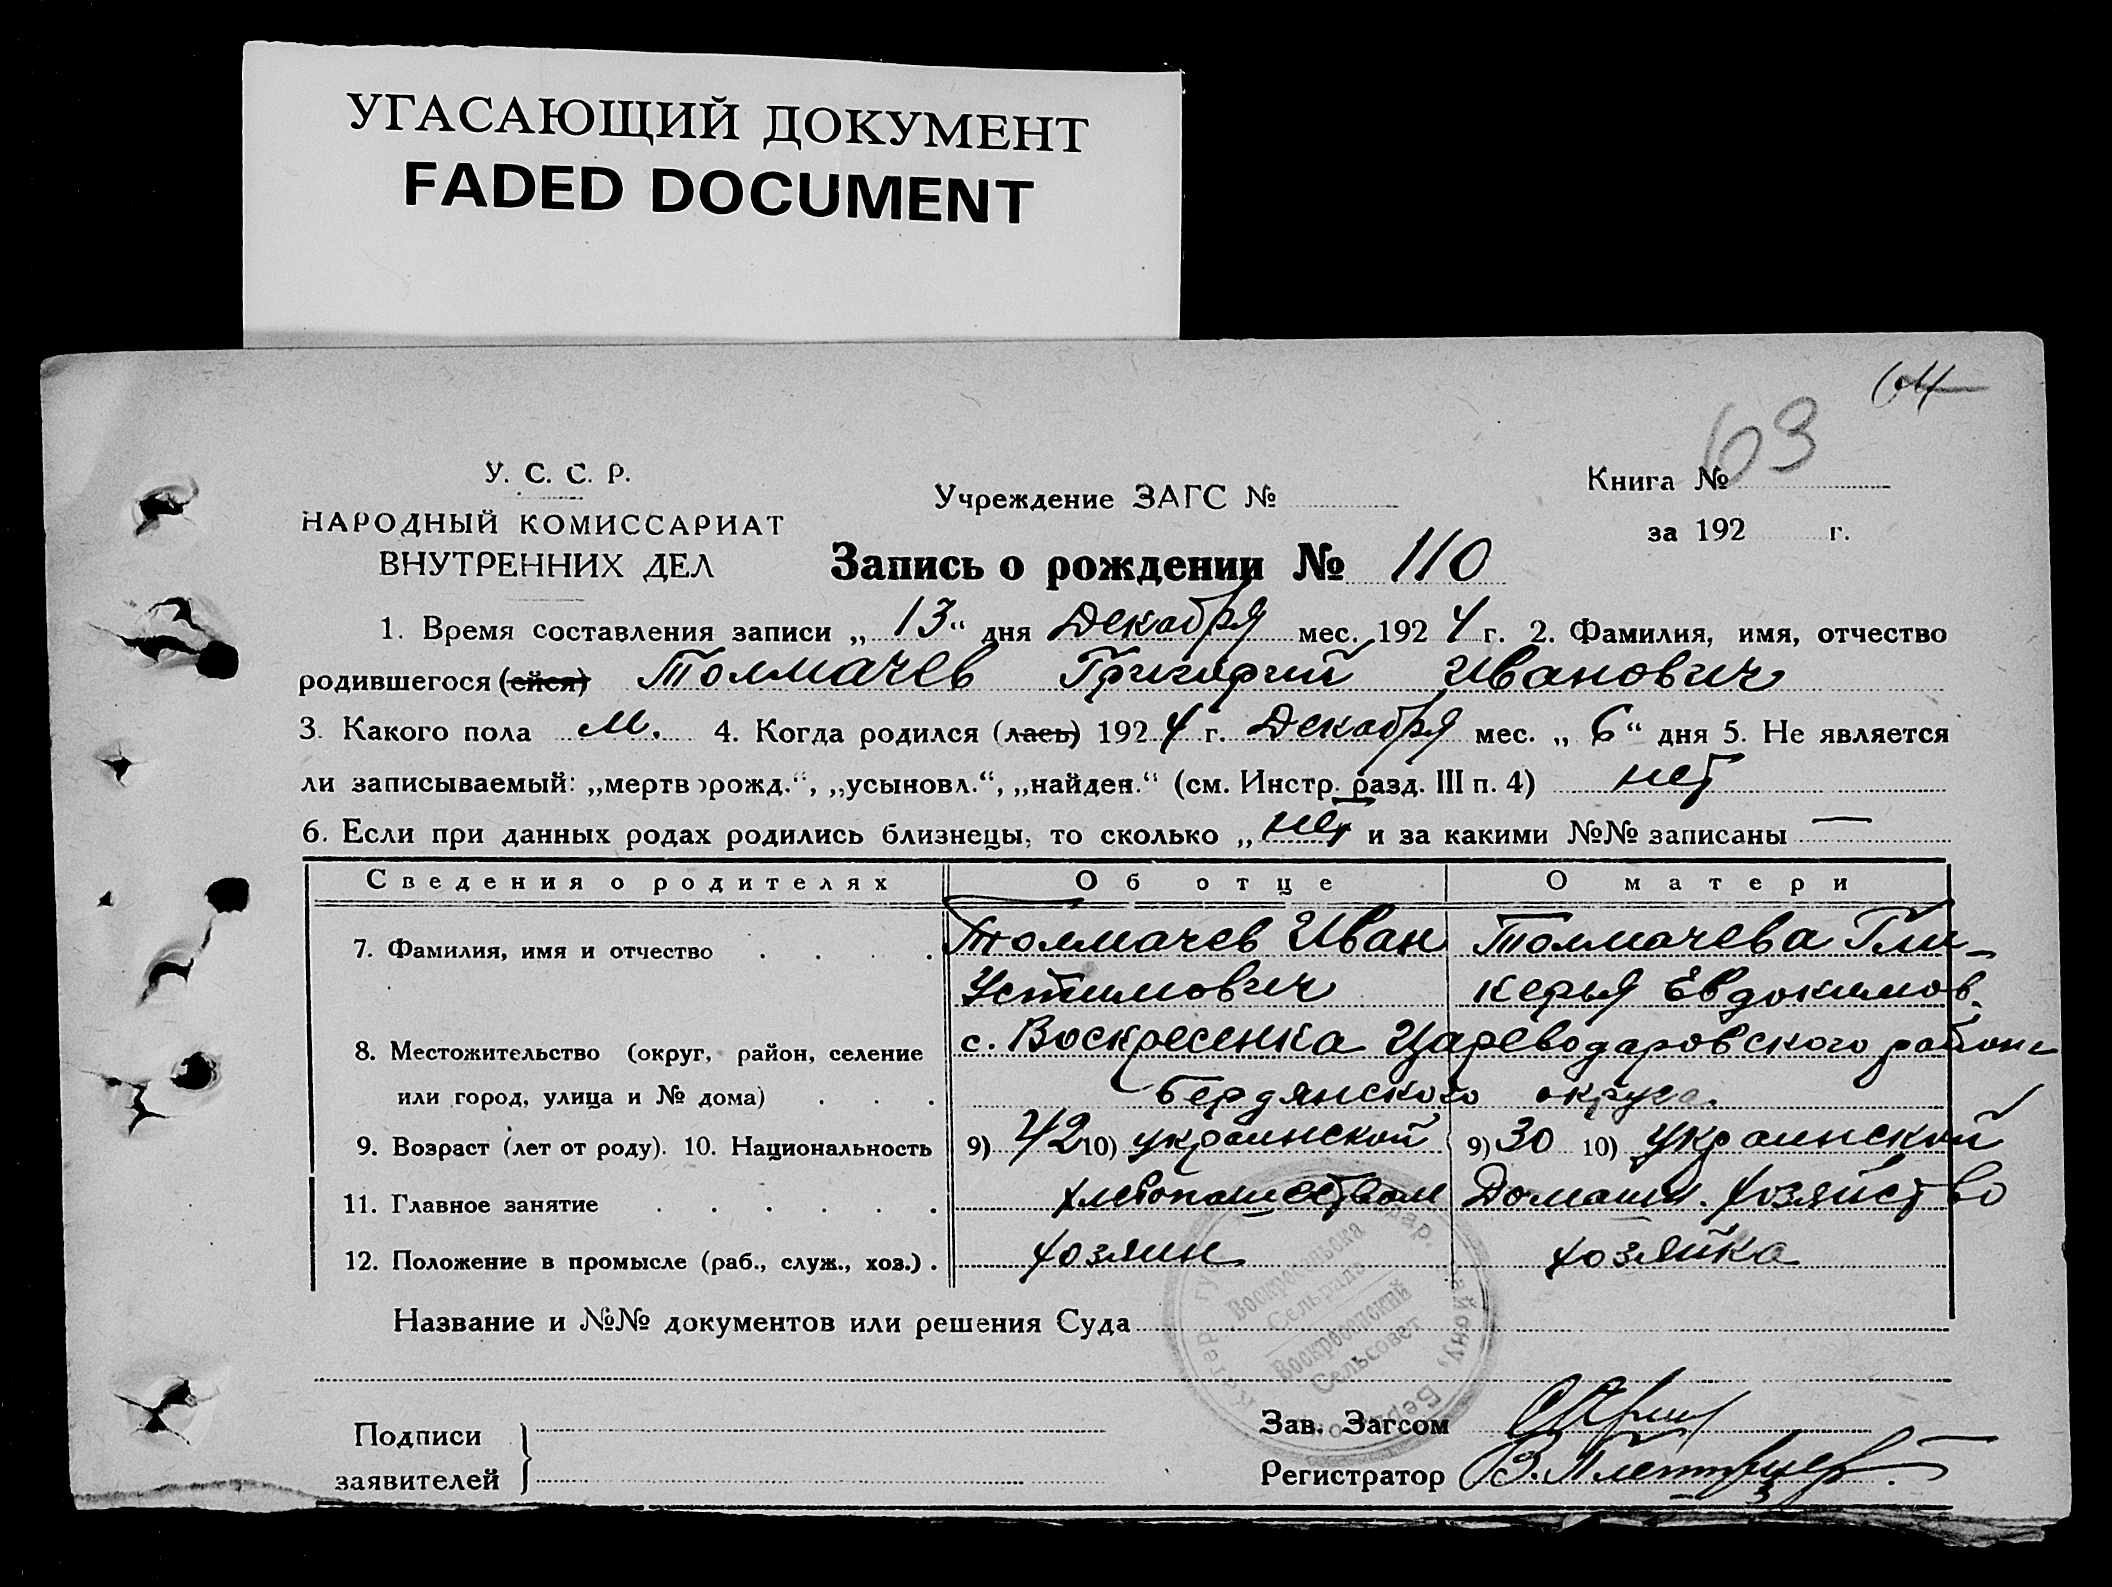 УГАСАЮЩИЙ ДОКУМЕНТ
FADED DOCUMENT
64
63
У. С. С. Р.
НАРОДНЫЙ КОМИССАРИАТ
ВНУТРЕННИХ ДЕЛ
Учреждение ЗАГС №
Книга №
за 192 г.
Запись о рождении № 110
1. Время составления записи „ 13 “ дня Декабря мес. 192 4 г. 2. Фамилия, имя, отчество
родившегося (ейся) Толмачев Григорий Иванович
3. Какого пола М. 4. Когда родился (лась) 192 4 г. Декабря мес. „ 6 “ дня 5. Не является
ли записываемый: „мертворожд.“, „усыновл.“, „найден.“ (см. Инстр. разд. III п. 4) нет
6. Если при данных родах родились близнецы, то сколько „ нет и за какими №№ записаны —
Сведения о родителях Об отце О матери
7. Фамилия, имя и отчество . . . . Толмачев Иван Толмачева Гли-
Устимович керья Евдокимов.
8. Местожительство (округ, район, селение с. Воскресенка Цареводаровского района
или город, улица и № дома) . . . Бердянского округа.
9. Возраст (лет от роду). 10. Национальность 9) 42 10) украинской 9) 30 10) украинской
11. Главное занятие . . . . . . хлебопашеством Домашн. хозяйство
12. Положение в промысле (раб., служ., хоз.) . хозяин хозяйка
Воскресенська
Сельрада
Воскресенский
Сельсовет
Название и №№ документов или решения Суда
Подписи
заявителей
Зав. Загсом
Регистратор